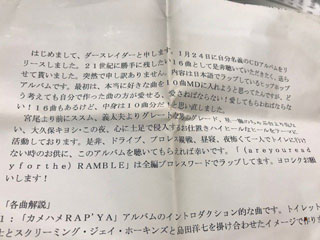 はじめまして、ダースレイダーと申します。1月24日に自分名義のCDアルバムをリ
リースしました。21世紀に勝手に残したい16曲として是非聴いていただきたく、送ら
せて貰いました。突然で申し訳ありません。内容は日本語でラップしているヒップホップ
アルバムです。最初は、本当に好きな曲を10曲MDに入れようと思ってたんですが、ど
う考えても自分で作った曲の方が好きで、愛さねばならない!愛してもらわねばならな
い!16曲もあるけど、中身は10曲分だと思い直しました。
宮尾より前にススム、義太夫よりグレート
、大久保キヨシ・この夜、心に土足で侵入するお仕置きハイヒールなヒールをテーマに
活動しております。是非、ドライブ、プロレス観戦、昼寝、夜怖くて一人でトイレに行け
ない時のお供に、このアルバムを聴いてもらえれば幸いです。「(areyoureadyfort
he) RAMBLE」は全編プロレスワードでラップしてます。ヨロシクお願
いします!
「各曲解説」
1:「カメハメRAP'YA」アルバムのイントロダクション的な曲です。トイレット
士とスクリーミング・ジェイ・ホーキンズと島田洋七を掛け合わせたイメージで作り